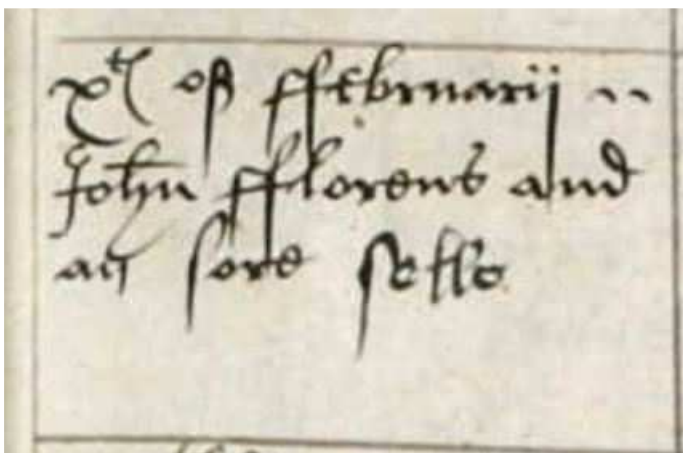 xth of ffebruarij
John fflorens and
an sore